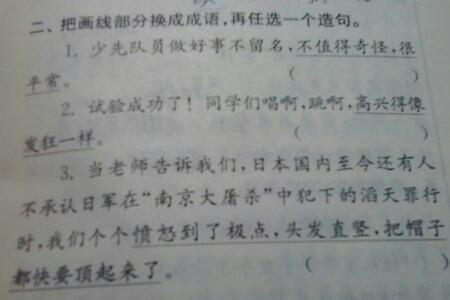 二、把画线部分换成成语,再任选一个造句。
1. 少先队员做好事不留名,不值得奇怪,很
平常。 ( )
2. 试验成功了! 同学们唱啊,跳啊,高兴得像
发狂一样。 ( )
3. 当老师告诉我们,日本国内至今还有人
不承认日军在“南京大屠杀”中犯下的滔天罪行
时,我们个个愤怒到了极点,头发直竖,把帽子
都快要顶起来了。 ( )